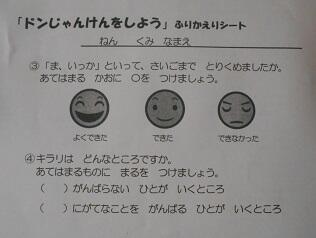 「ドンじゃんけんをしよう」ふりかえりシート
ねん　くみ　なまえ
③「ま、いっか」といって、さいごまで　とりくめましたか。
あてはまる　かおに　〇を　つけましょう。
よくできた　できた　できなかった
④キラリは　どんなところですか。
あてはまるものに　まるを　つけましょう。
（　）がんばらない　ひとが　いくところ
（　）にがてなことを　がんばる　ひとが　いくところ